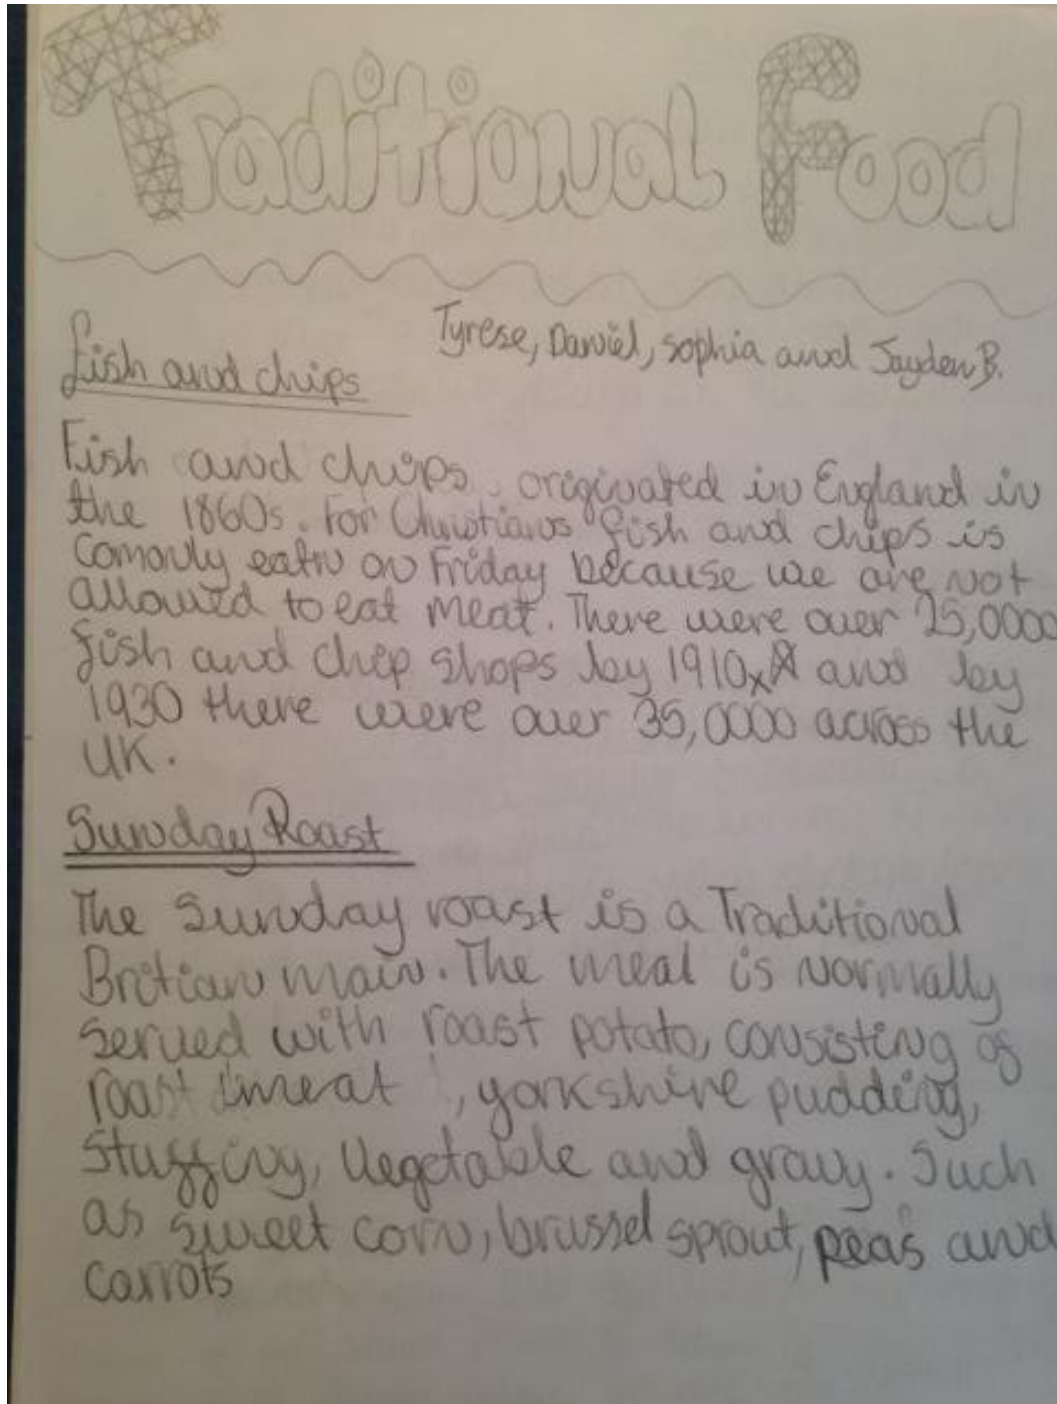 Traditional Food
Tyrese, Daniel, sophia and Jayden B.
fish and chips
Fish and chips originated in England in
the 1860s. For Christians fish and chips is
Comonly eatn on Friday because we are not
allowed to eat meat. There were over 25,0000
fish and chip shops by 1910 and by
1930 there were over 35,0000 across the
UK.
Sunday Roast
The Sunday roast is a Traditional
Britian main. The meal is normally
served with roast potato, consisting of
roast meat, yorkshire pudding,
stuffing, Vegetable and gravy. Such
as sweet corn, brussel sprout, peas and
carrots